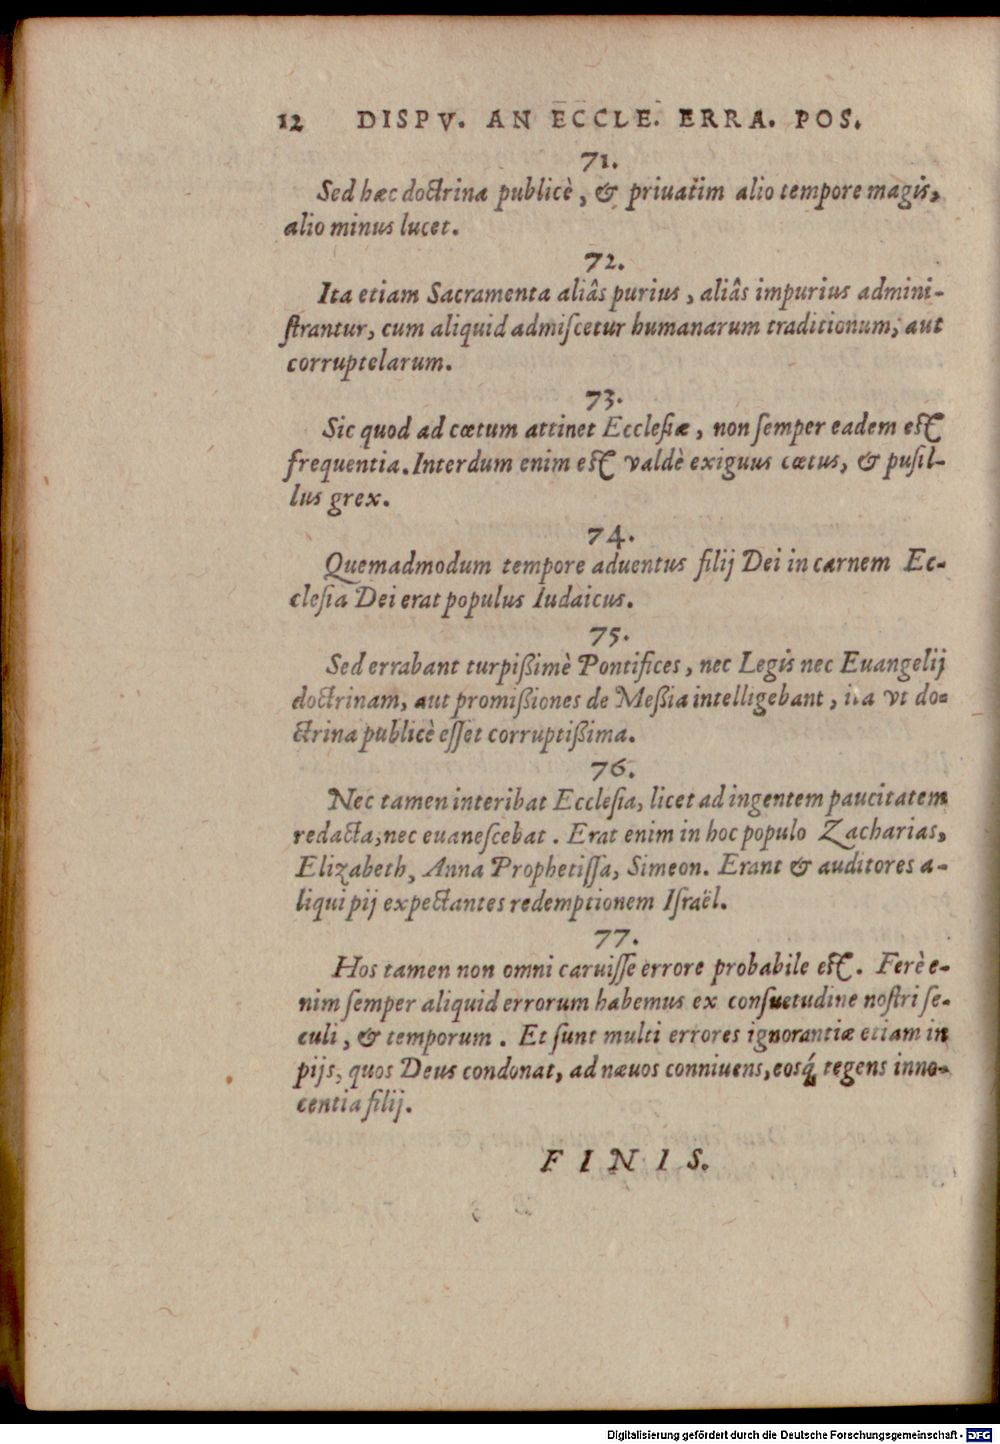 12 DISPV. AN ECCLE. ERRA. POS.
71.
Sed hæc doctrina publicè, & priuatim alio tempore magis,
alio minus lucet.
72.
Ita etiam Sacramenta aliâs purius, aliâs impurius admini-
ſtrantur, cum aliquid admiſcetur humanarum traditionum, aut
corruptelarum.
73.
Sic quod ad cœtum attinet Eccleſiæ, non ſemper eadem eſt
frequentia. Interdum enim eſt valdè exiguus cœtus, & puſil-
lus grex.
74.
Quemadmodum tempore aduentus filij Dei in carnem Ec-
cleſia Dei erat populus Iudaicus.
75.
Sed errabant turpißimè Pontifices, nec Legis nec Euangelij
doctrinam, aut promißiones de Meßia intelligebant, ita vt do-
ctrina publicè eſſet corruptißima.
76.
Nec tamen interibat Eccleſia, licet ad ingentem paucitatem
redacta, nec euaneſcebat. Erat enim in hoc populo Zacharias,
Elizabeth, Anna Prophetiſſa, Simeon. Erant & auditores a-
liqui pij expectantes redemptionem Iſraël.
77.
Hos tamen non omni caruiſſe errore probabile eſt. Ferè e-
nim ſemper aliquid errorum habemus ex conſuetudine noſtri ſe-
culi, & temporum. Et ſunt multi errores ignorantiæ etiam in
pijs, quos Deus condonat, ad næuos conniuens, eosq́ tegens inno-
centia filij.
FINIS.
Digitalisierung gefördert durch die Deutsche Forschungsgemeinschaft - DFG